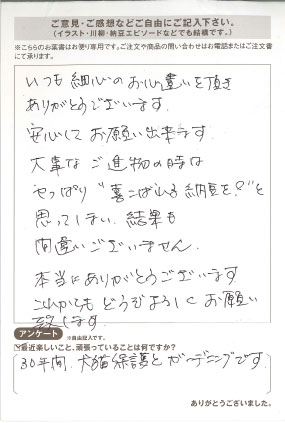 ご意見・ご感想などご自由にご記入下さい。
（イラスト・川柳・納豆エピソードなどでも結構です。）
※こちらのお葉書はお便り専用です。ご注文や商品の問い合わせはお電話またはご注文書にて承ります。
いつも細心のお心遣いを頂き
ありがとうございます.
安心して お願い出来ます
大事な ご進物の時は
やっぱり "喜こばれる納豆を?"と
思ってしまい. 結果も
間違いございません.
本当に ありがとうございます
これからも どうぞよろしく お願い
致します.
アンケート
※自由記入です。
最近楽しいこと、頑張っていることは何ですか?
30年間. 犬猫保護と ガーデニングです.
ありがとうございました。